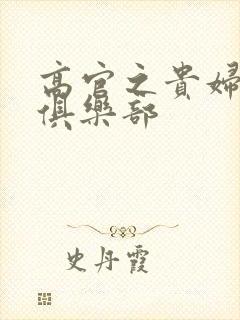 高官之貴婦
俱樂部
史丹霞